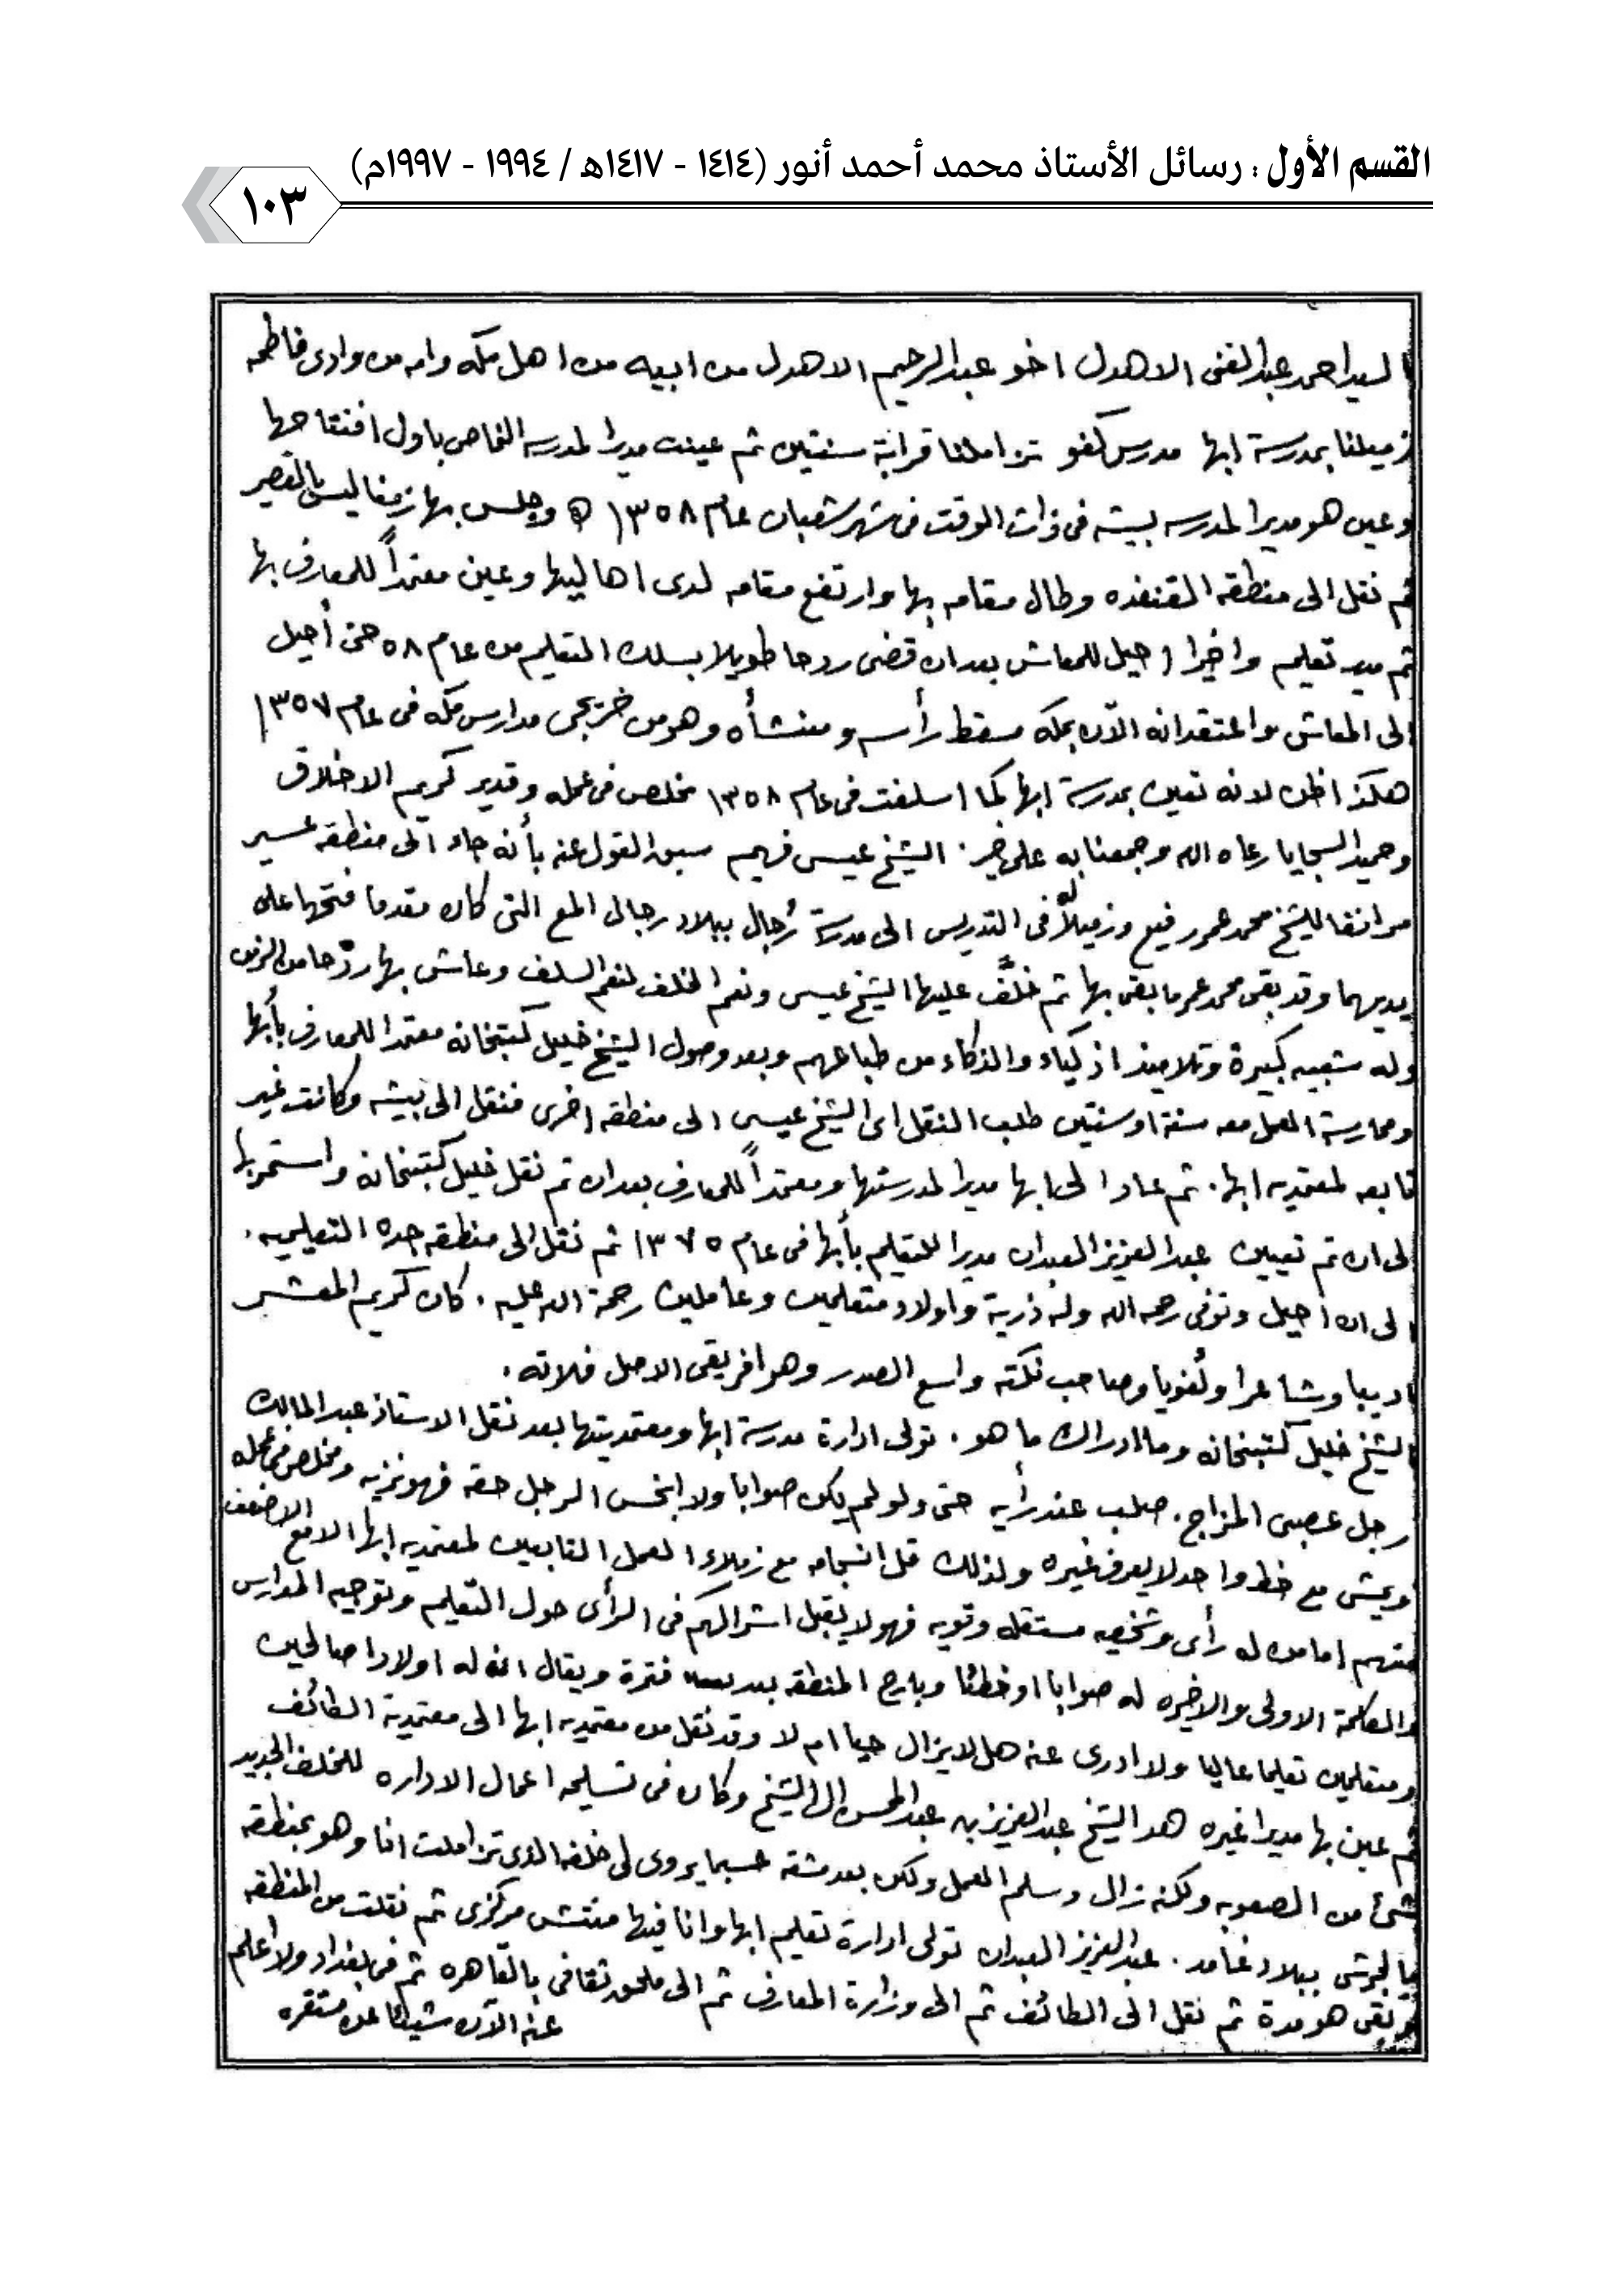 القسم الأول : رسائل الأستاذ محمد أحمد أنور (١٤١٤ - ١٤١٧هـ / ١٩٩٤ - ١٩٩٧م)
١٠٣
السيد احمد عبدالغنى الاهدل اخو عبدالرحيم الاهدل من ابيه من اهل مكه وامه من وادى فاطمه
زميلنا بمدرسة ابها مدرس كفو تزاملنا قرابة سنتين ثم عينت مديرا لمدرسه النماص باول افتتاحها
وعين هو مديرا لمدرسه بيشه فى ذات الوقت فى شهر شعبان عام ١٣٥٨ ه وجلس بها زمنا ليس بالقصير
ثم نقل الى منطقه القنفذه وطال مقامه بها وارتفع مقامه لدى اهاليها وعين معتمداً للمعارف بها
ثم مدير تعليم واخيرا احيل للمعاش بعد ان قضى ردحا طويلا بسلك التعليم من عام ٥٨ حتى أحيل
الى المعاش واعتقد انه الآن بمكه مسقط رأسه ومنشأه وهو من خريجى مدارس مكه فى عام ١٣٥٧
هكذا اظن لانه تعين بمدرسة ابها كما اسلفت فى عام ١٣٥٨ مخلص فى عمله وقدير كريم الاخلاق
وحميد السجايا رعاه الله وجمعنا به على خير. الشيخ عيسى فهيم سبق القول عنه بأنه جاء الى منطقه عسير
مرافقا للشيخ محمد عمر رفيع وزميلاً له فى التدريس الى مدرسة رُجال ببلاد رجال المع التى كان مقدما فتحها على
يديهما وقد بقى محمد عمر ما بقى بها ثم خلَّف عليها الشيخ عيسى ونعم الخلف لنعم السلف وعاش بها ردْحا من الزمن
وله شعبيه كبيرة وتلاميذ اذكياء والذكاء من طباعهم وبعد وصول الشيخ خليل كتبخانه معتمدا للمعارف بأبها
وممارسة العمل معه سنة او سنتين طلب النقل اى الشيخ عيسى الى منطقه اخرى فنقل الى بيشه وكانت غير
تابعه لمعتمديه ابها. ثم عاد الى ابها مديرا لمدرستها ومعتمداً للمعارف بعد ان تم نقل خليل كتبخانة واستمر بها
الى ان تم تعيين عبدالعزيز العبدان مديرا للتعليم بأبها فى عام ١٣٧٥ ثم نقل الى منطقه جده التعليميه.
الى ان احيل وتوفى رحمه الله وله ذرية واولاد متعلمين وعاملين رحمة الله عليه. كان كريم المعشر
اديبا وشاعرا ولُغويا وصاحب نكته واسع الصدر وهو افريقى الاصل فلاته.
الشيخ خليل كتبخانه وما ادراك ما هو. تولى ادارة مدرسة ابها ومعتمديتها بعد نقل الاستاذ عبدالمالك
رجل عصبى المزاج. صلب عند رأيه حتى ولو لم يكن صوابا ولا ابخس الرجل حقه فهو نزيه ومخلص فى عمله
ويمشى مع خط واحد لا يعرف غيره ولذلك قل انسجامه مع زملاء العمل التابعين لمعتمديه ابها الامع الاضعف
منهم اما من له رأى وشخصيه مستقله وقويه فهو لا يقبل اشراكهم فى الرأى حول التعليم وتوجيه المدارس
والكلمة الاولى والاخيره له صوابا او خطئا وبارح المنطقه بعد فترة ويقال انه له اولادا صالحين
ومتعلمين تعليما عاليا ولا ادرى عنه هل لايزال حيا ام لا وقد نقل من معتمديه ابها الى معتمدية الطائف
ثم عين بها مديرا غيره هو الشيخ عبدالعزيز بن عبدالمحسن ال الشيخ وكان فى تسليمه اعمال الاداره للخلف الجديد
شىء من الصعوبه ولكنه زال وسلم العمل ولكن بعد مشقه حسبما يروى لى خلفه الذى تزاملت انا وهو بمنطقه
بالجرشى ببلاد غامد. عبدالعزيز العبدان تولى ادارة تعليم ابها وانا فيها مفتش مركزى ثم نقلت من المنطقه
وبقى هو مدة ثم نقل الى الطائف ثم الى وزارة المعارف ثم الى ملحق ثقافى بالقاهره ثم فى بغداد ولا اعلم
عنه الآن شيئا عن مستقره